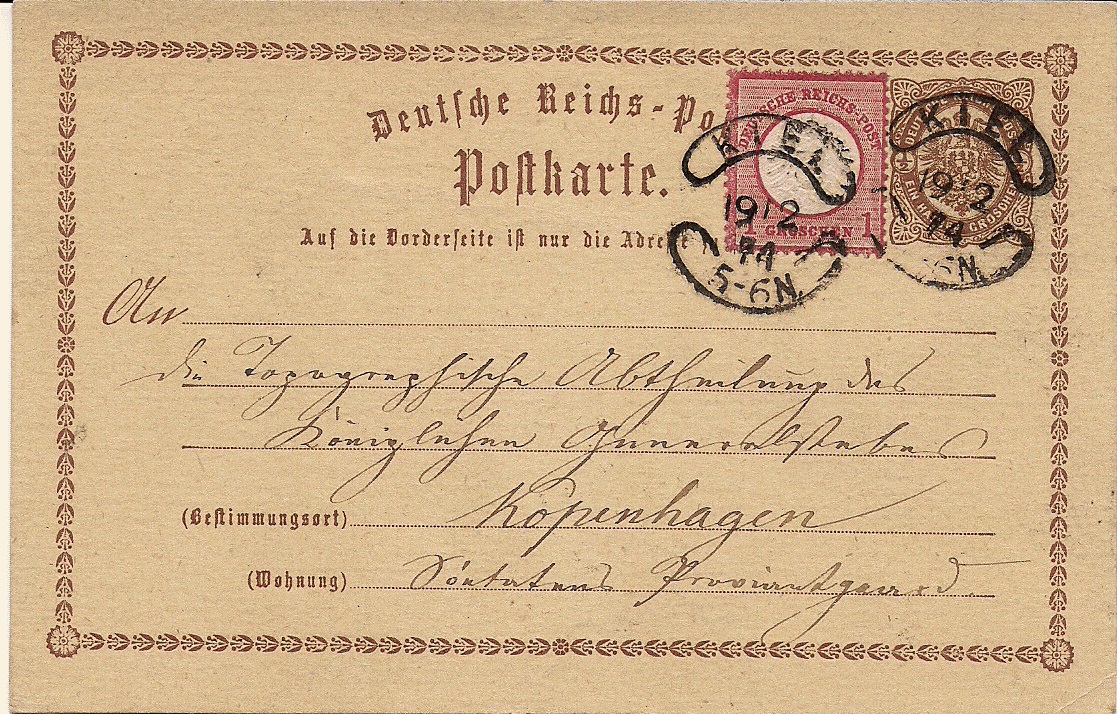 Deutſche Reichs-Po
Poſtkarte.
Auf die Vorderſeite iſt nur die Adreſſe
DEUTSCHE REICHS-POST
1 GROSCHEN 1
KIEL
19 12
74
5-6N
KIEL
19 12
74
-6N
An
die Topographische Abtheilung des
Königlichen Generalstabes
(Beſtimmungsort) Kopenhagen
(Wohnung) Proviantgaard.